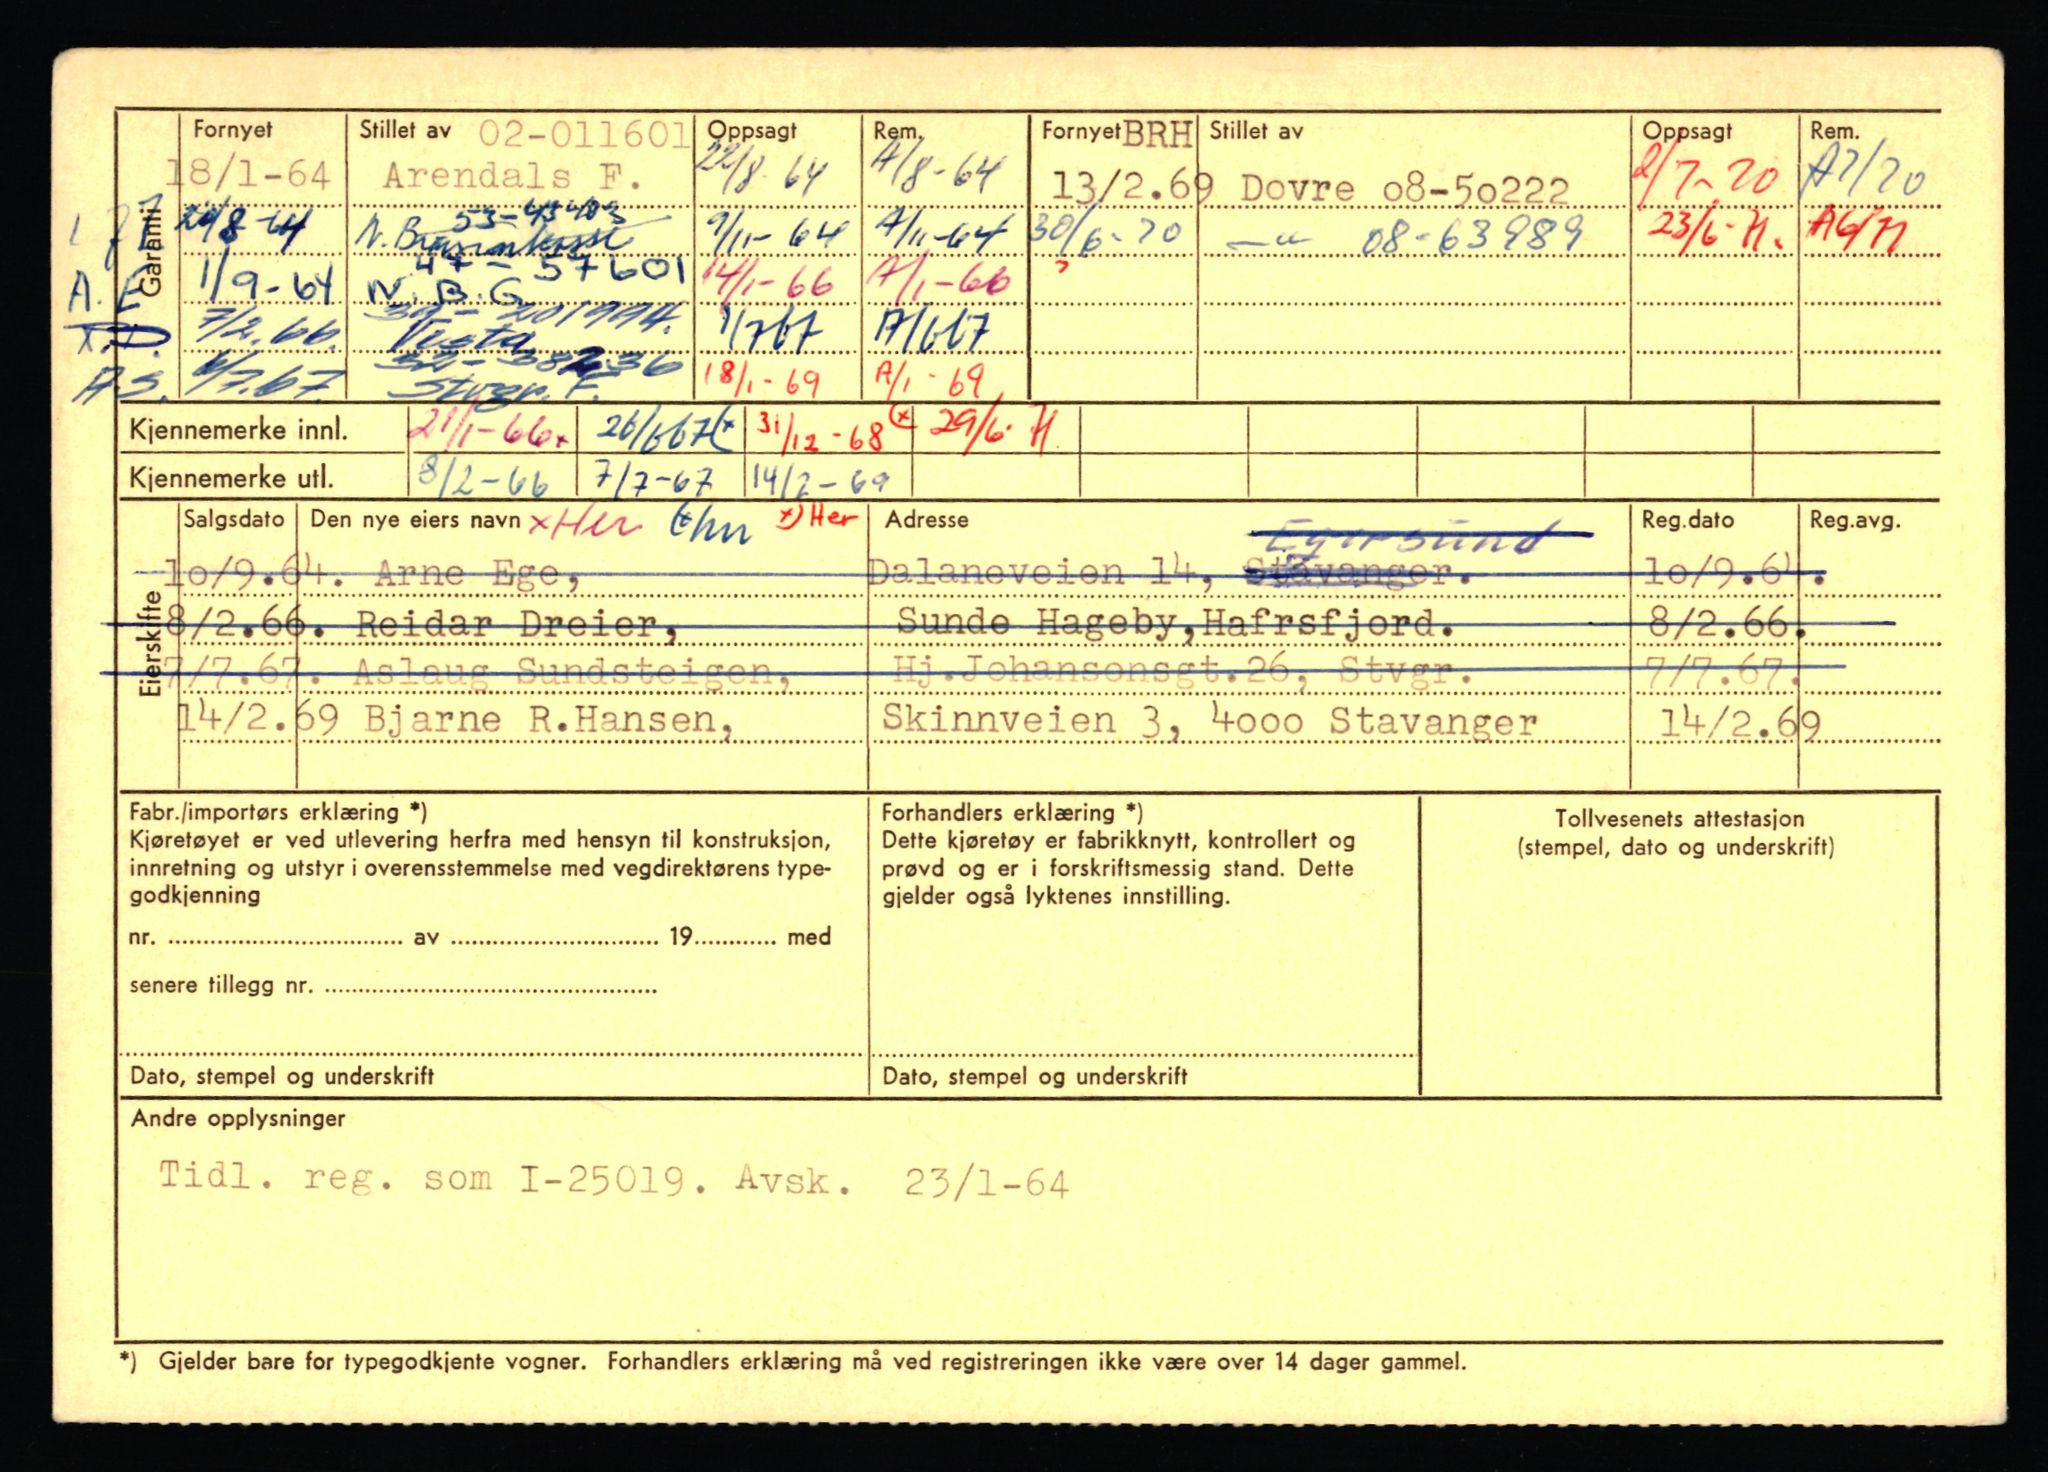 Fornyet Stillet av 02-011601 Oppsagt Rem. Fornyet BRH Stillet av Oppsagt Rem.
18/1-64 Arendals F. 22/8-64 A/8-64 13/2.69 Dovre o8-5o222 2/7-70 A7/70
Garanti
/8-64 53-43403 9/11-64 A/11-64 30/6-70 —"— 08-63989 23/6-71. A6/71
A.E 1/9-64 47-57601 N.B.G 14/1-66 A/1-66
7/2.66. Vesta 1/7 67 A/6 67
A.S. 6/7.67. Stvgr. F. 18/1-69 A/1-69
Kjennemerke innl. 21/1-66x 26/6 67(x 31/12-68(x 29/6-71
Kjennemerke utl. 8/2-66 7/7-67 14/2-69
Eierskifte
Salgsdato Den nye eiers navn xHer x) Her Adresse Egersund Reg.dato Reg.avg.
1o/9.64. Arne Ege, Dalaneveien 14, Stavanger. 1o/9.64.
8/2.66. Reidar Dreier, Sunde Hageby,Hafrsfjord. 8/2.66.
7/7.67. Aslaug Sundsteigen, Hj.Johansonsgt.26, Stvgr. 7/7.67.
14/2.69 Bjarne R.Hansen, Skinnveien 3, 4ooo Stavanger 14/2.69
Fabr./importørs erklæring *)
Kjøretøyet er ved utlevering herfra med hensyn til konstruksjon,
innretning og utstyr i overensstemmelse med vegdirektørens type-
godkjenning
nr. .......... av .......... 19.......... med
senere tillegg nr. ..........
Dato, stempel og underskrift
Forhandlers erklæring *)
Dette kjøretøy er fabrikknytt, kontrollert og
prøvd og er i forskriftsmessig stand. Dette
gjelder også lyktenes innstilling.
Dato, stempel og underskrift
Tollvesenets attestasjon
(stempel, dato og underskrift)
Andre opplysninger
Tidl. reg. som I-25019. Avsk. 23/1-64
*) Gjelder bare for typegodkjente vogner. Forhandlers erklæring må ved registreringen ikke være over 14 dager gammel.